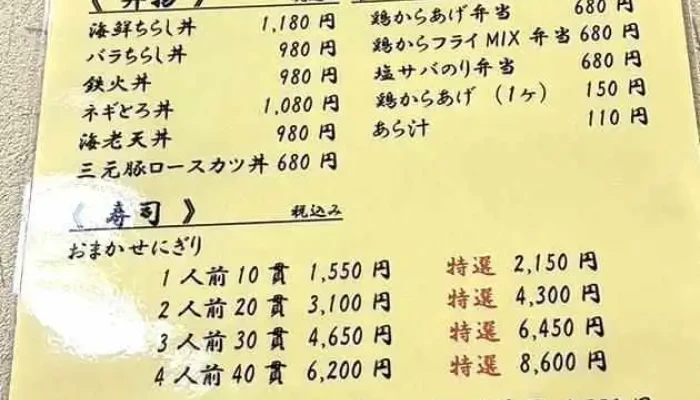 《 丼物 》
海鮮ちらし丼 1,180 円
バラちらし丼 980 円
鉄火丼 980 円
ネギとろ丼 1,080 円
海老天丼 980 円
三元豚ロースカツ丼 680 円
鶏からあげ弁当 680 円
鶏からフライMIX 弁当 680 円
塩サバのり弁当 680 円
鶏からあげ (1ヶ) 150 円
あら汁 110 円
《 寿司 》 税込み
おまかせにぎり
1 人前 10 貫 1,550 円 特選 2,150 円
2 人前 20 貫 3,100 円 特選 4,300 円
3 人前 30 貫 4,650 円 特選 6,450 円
4 人前 40 貫 6,200 円 特選 8,600 円